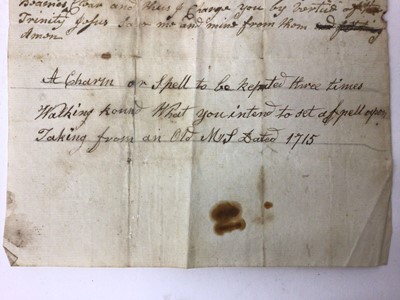 War and thus I Charge you by Vertid of the
Trinity Jesus save me and mine from them
Amen
A Charm or Spell to be Repeted three times
Walking Round What you intend to set a Spell upon
Taking from an Old MsS Dated 1715